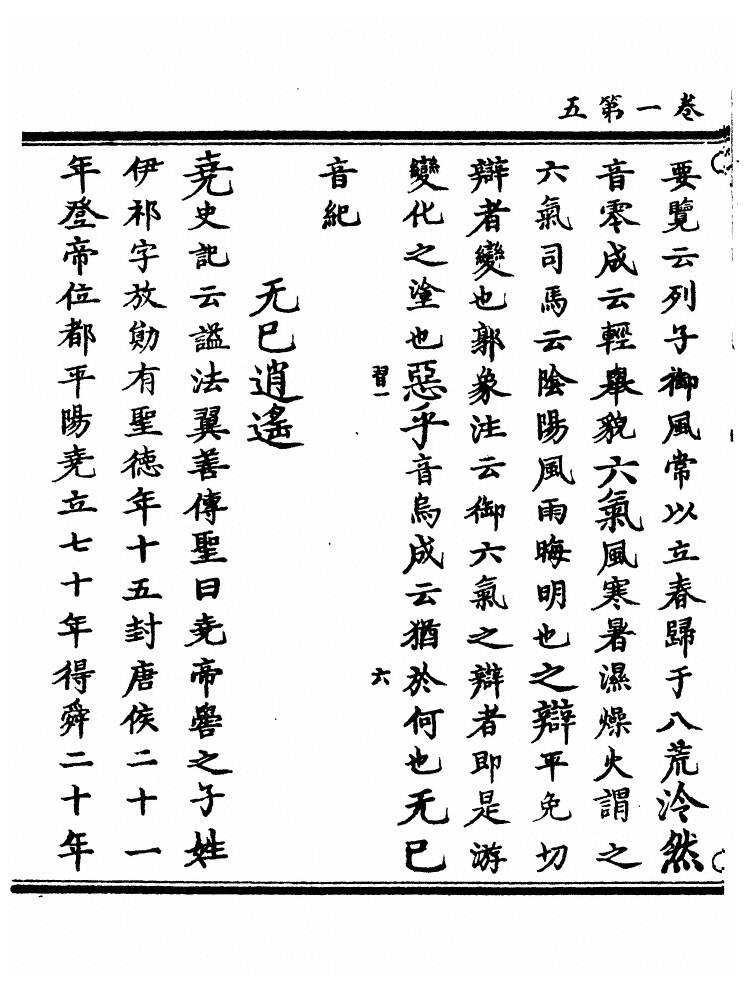 卷一第五
要覽云列子御風常以立春歸于八荒泠然
音零成云輕舉貌六氣風寒暑濕燥火謂之
六氣司馬云陰陽風雨晦明也之辯平免切
辯者變也郭象注云御六氣之辯者即是游
變化之塗也惡乎音烏成云猶於何也无已
習一 六
音紀
无已逍遙
堯史記云謚法翼善傳聖曰堯帝嚳之子姓
伊祁字放勛有聖德年十五封唐侯二十一
年登帝位都平陽堯立七十年得舜二十年